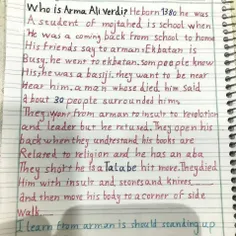 Who is Arma Ali Verdi? He born 1380. he was
A student of mojtahed, is school when
He was a coming back from school to home
His friends say to arman: Ekbatan is
Busy, he went to ekbatan. Som people knew
His, he was a basiji. they want to be near
Hear him, a man whose died him said
about 30 people surrounded him.
They, wonr from arman to insult to revolution
and leader but he retused. They open his
back when they undrestand his books are
Related to religion and he has an aba
They short he is a Talabe hit more. They died
Him with insult and seones and knives
and then move his body to a corner of side
Walk
I learn from arman is should standing up